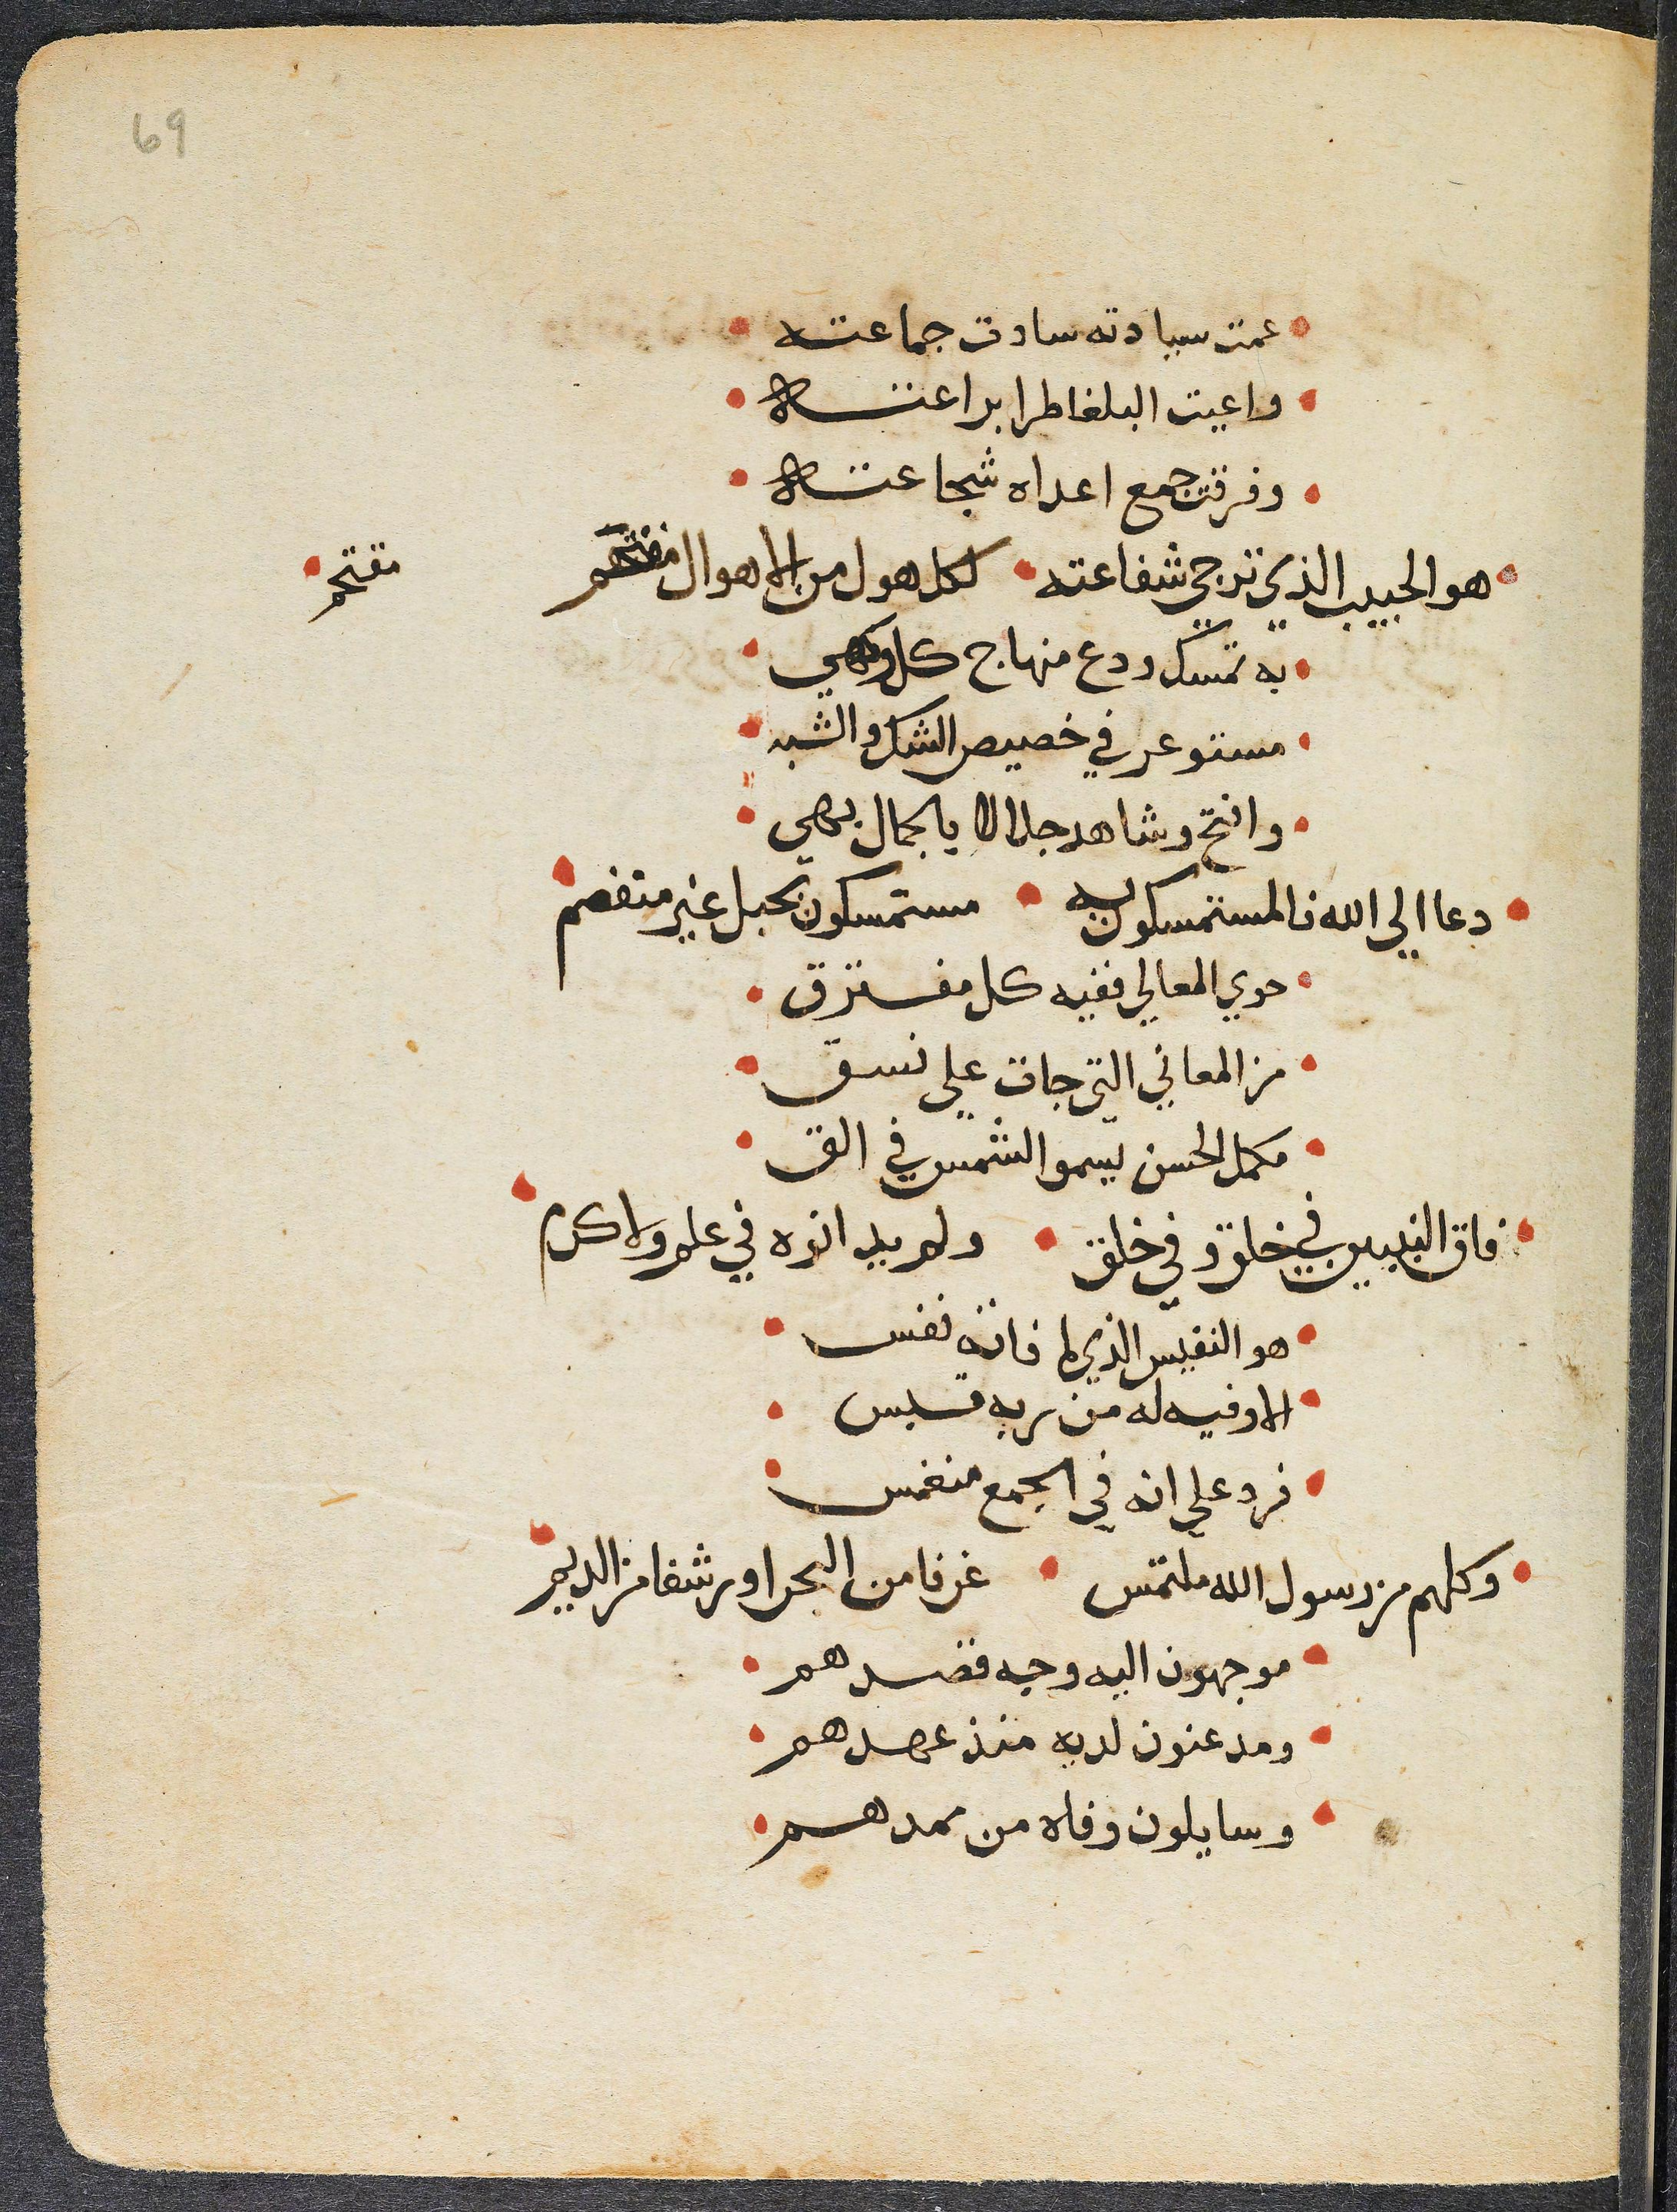 69
عمت سيادته سادت جماعته
واعيت البلغا طرا براعته
وفرقت جمع اعداه شجاعته
هو الحبيب الذي ترجي شفاعته لكل هول من الاهوال مقتحم
مقتحم
به تمسك ودع منهاج كل وهي
مستوعر في خصيص الشك والشبه
وانتح وشاهد جلالا بالجمال بهي
دعا الي الله فالمستمسكون به مستمسكون بحبل غير منفصم
حوي المعالي ففيه كل مفترق
من المعاني التي جات علي نسق
مكمل الحسن يسمو الشمس في الق
فاق النبيين في خلق وفي خلق ولم يدانوه في علم ولا كرم
هو النفيس الذي ما فاته نفس
الا وفيه له من ربه قبس
فرد علي انه في الجمع منغمس
وكلهم من رسول الله ملتمس غرفا من البحر او رشفا من الديم
موجهون اليه وجه قصدهم
ومدعنون لديه منذ عهدهم
وسايلون وفاه من ممدهم